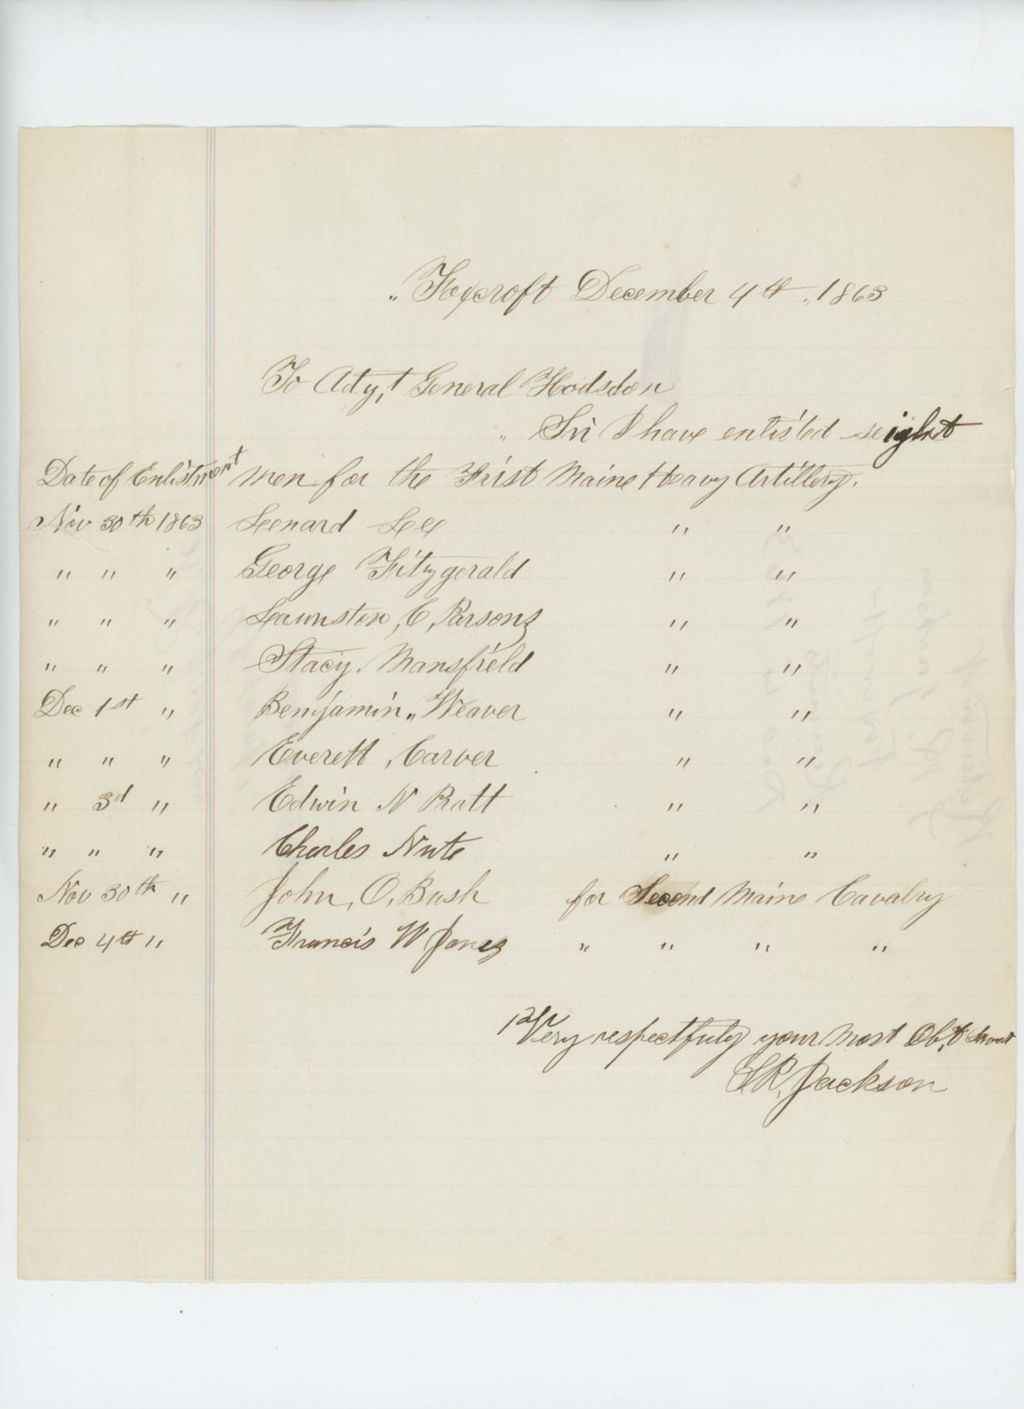 Foxcroft December 4th, 1863
To Adty,t General Hodsdon
Sir I have enlisted eight
Date of Enlistment men for the Frist Maine Heavy Artillery.
Nov 30th 1863 Leenard Lee " "
" " " George Fitzgerald " "
" " " C, Parsons " "
" " " Stacy. Mansfield " "
Dec 1st " Benjamin " Weaver " "
" " " Everett, Carver " "
" 3d " Edwin N Pratt " "
" " " Charles Nute " "
Nov 30th " John, O, Bush for Second Maine Cavalry
Dec 4th " Francis W Jones " " " "
Very respectfuly your most Obt,
S R, Jackson